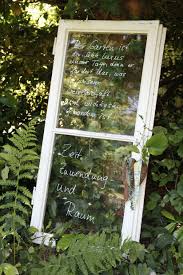 Der Garten ist
der letzte Luxus
unserer Tage, denn er
fordert das, was
in unserer
Gesellschaft
am
kostbarsten ist:
Zeit,
Zuwendung
und
Raum